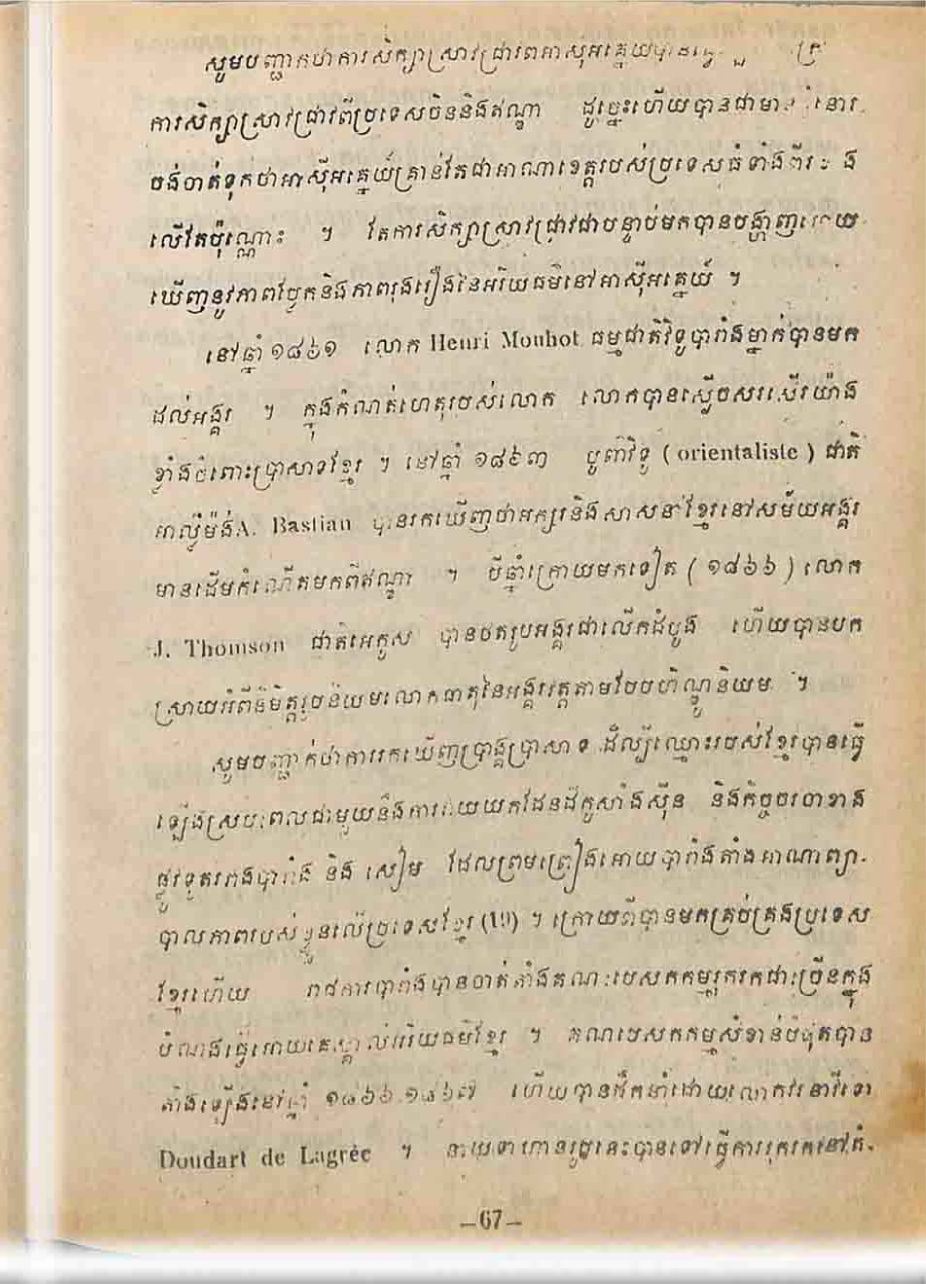 សូមបញ្ជាក់ថាការសិក្សាស្រាវជ្រាវពីអាស៊ីអគ្នេយ៍បានធ្វើ
ការសិក្សាស្រាវជ្រាវពីប្រទេសចិននិងឥណ្ឌា ដូច្នេះហើយបានជាមាន
ចង់ចាត់ទុកថាអាស៊ីអគ្នេយ៍គ្រាន់តែជាអាណាខេត្តរបស់ប្រទេសធំទាំងពីរ
លើតែប៉ុណ្ណោះ ។ តែការសិក្សាស្រាវជ្រាវជាបន្ទាប់មកបានបង្ហាញអោយ
ឃើញនូវភាពប្លែកនិងភាពរុងរឿងនៃអរិយធម៌នៅអាស៊ីអគ្នេយ៍ ។
នៅឆ្នាំ ១៨៦១ លោក Henri Mouhot ធម្មជាតិវិទូបារាំងម្នាក់បានមក
ដល់អង្គរ ។ ក្នុងកំណត់ហេតុរបស់លោក លោកបានស្ងើចសរសើរយ៉ាង
ខ្លាំងចំពោះប្រាសាទខ្មែរ ។ នៅឆ្នាំ ១៨៦៣ បូព៌ាវិទូ ( orientaliste ) ជាតិ
អាល្លឺម៉ង់A. Bastian បានរកឃើញថាអក្សរនិងសាសនាខ្មែរនៅសម័យអង្គរ
មានដើមកំណើតមកពីឥណ្ឌា ។ បីឆ្នាំក្រោយមកទៀត ( ១៨៦៦ ) លោក
J. Thomson ជាតិអេកូស បានថតរូបអង្គរជាលើកដំបូង ហើយបានបក
ស្រាយអំពីនិមិត្តរូបនិយមលោកធាតុនៃអង្គរវត្តតាមបែបហិណ្ឌូនិយម ។
សូមបញ្ជាក់ថាការរកឃើញប្រាង្គប្រាសាទដ៏ល្បីឈ្មោះរបស់ខ្មែរបានធ្វើ
ឡើងស្របពេលជាមួយនឹងការវាយយកដែនដីកូសាំងស៊ីន និងកិច្ចចរចាខាង
ផ្លូវទូតរវាងបារាំង និង សៀម ដែលព្រមព្រៀងអោយបារាំងតាំងអាណាព្យា-
បាលភាពរបស់ខ្លួនលើប្រទេសខ្មែរ (19) ។ ក្រោយពីបានមកគ្រប់គ្រងប្រទេស
ខ្មែរហើយ រាជការបារាំងបានចាត់តាំងគណៈបេសកកម្មរុករកជាច្រើនក្នុង
បំណងធ្វើអោយគេស្គាល់អរិយធម៌ខ្មែរ ។ គណបេសកកម្មសំខាន់បំផុតបាន
តាំងឡើងនៅឆ្នាំ ១៨៦៦-១៨៦៧ ហើយបានដឹកនាំដោយលោកវរនាវីទោ
Doudart de Lagrée ។ នាយទាហានរូបនេះបានទៅធ្វើការរុករកនៅតំ-
–67–